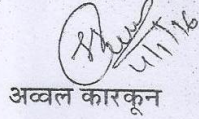 4/1/16
अव्वल कारकून